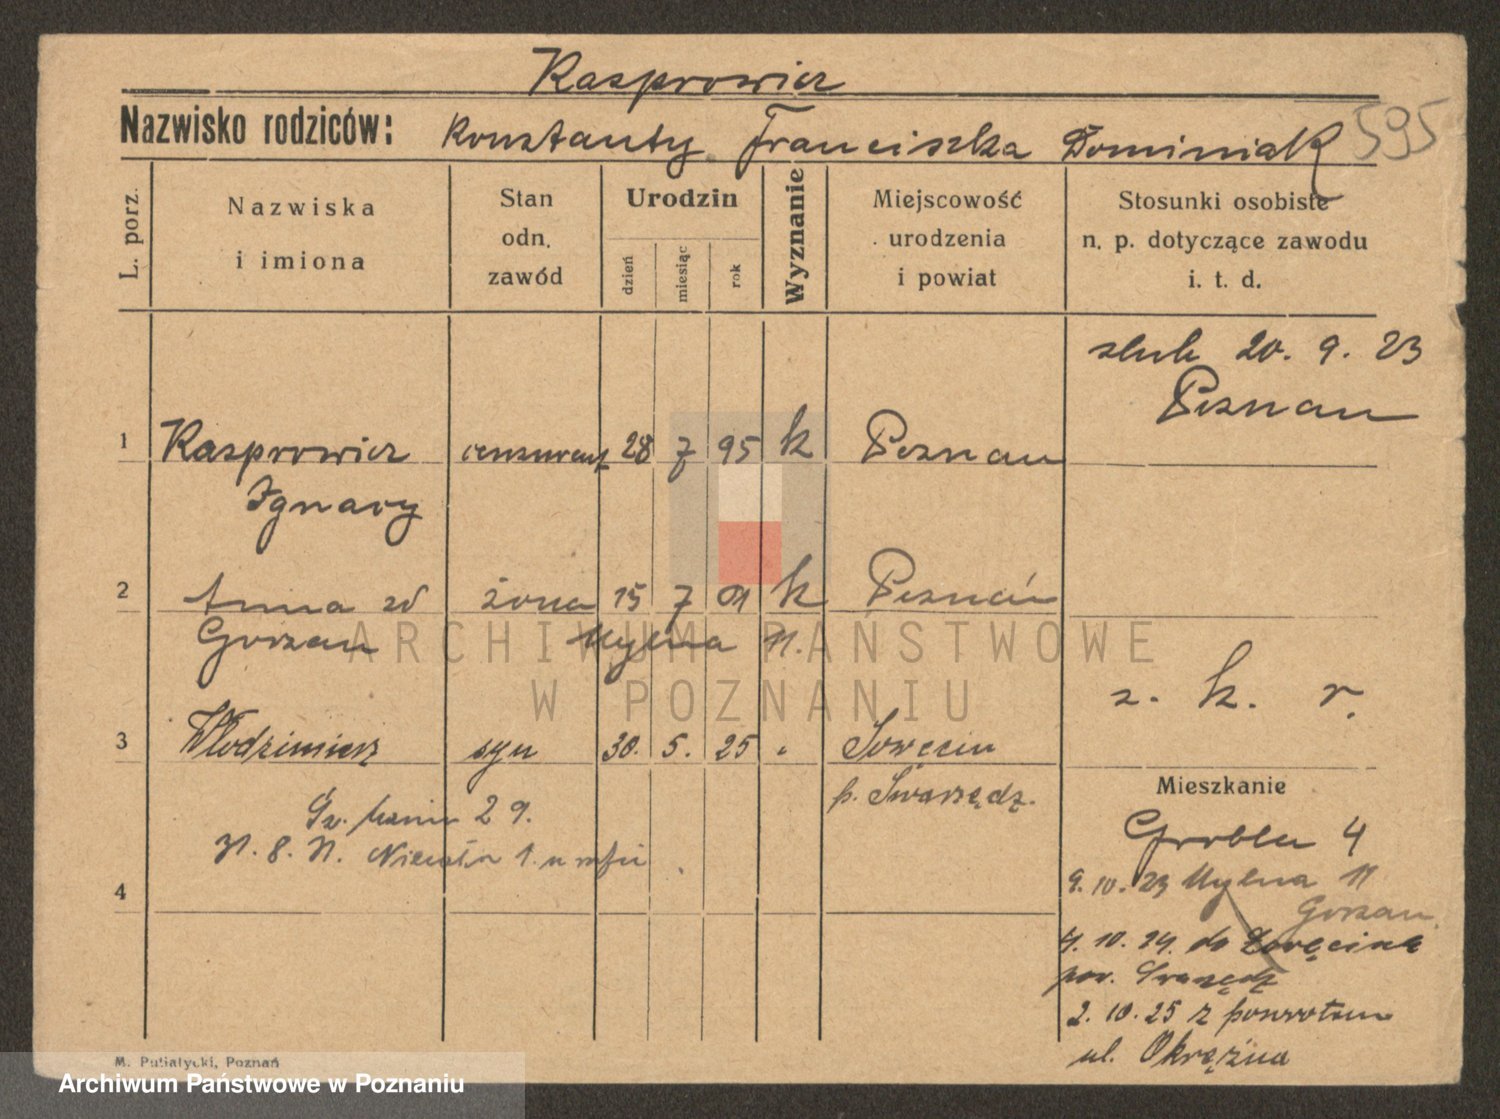 Kasprowicz
Nazwisko rodziców: Konstanty Franciszka Dominiak 595
L. porz. Nazwiska i imiona Stan odn. zawód Urodzin dzień miesiąc rok Wyznanie Miejscowość urodzenia i powiat Stosunki osobiste n. p. dotyczące zawodu i. t. d.
slub 20. 9. 23
Poznan
1 Kasprowicz 28 7 95 k Poznan
Ignacy
2 Anna zd żona 15 7 01 k Poznań
Gorzan Mylna 11.
ARCHIWUM PAŃSTWOWE
W POZNANIU
z. k. r.
3 Włodzimierz syn 30. 5. 25 Sowęcin
p. Swarzędz.
Mieszkanie
Św. 29.
31. 8. 31.
Grobla 4
9. 10. 23 Mylna 11
Gorzan
4
4. 10. 24. do
pow.
2. 10. 25 z powrotem
ul. Okrężna
M. Putiatycki, Poznań
Archiwum Państwowe w Poznaniu